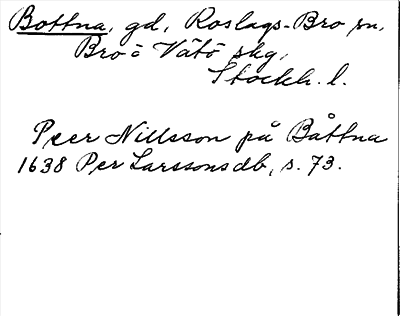 Bottna, gd, Roslags-Bro sn,
Bro o Vätö skg,
Stockh. l.
Peer Nillsson på Båttna
1638 Per Larssons db, s. 73.